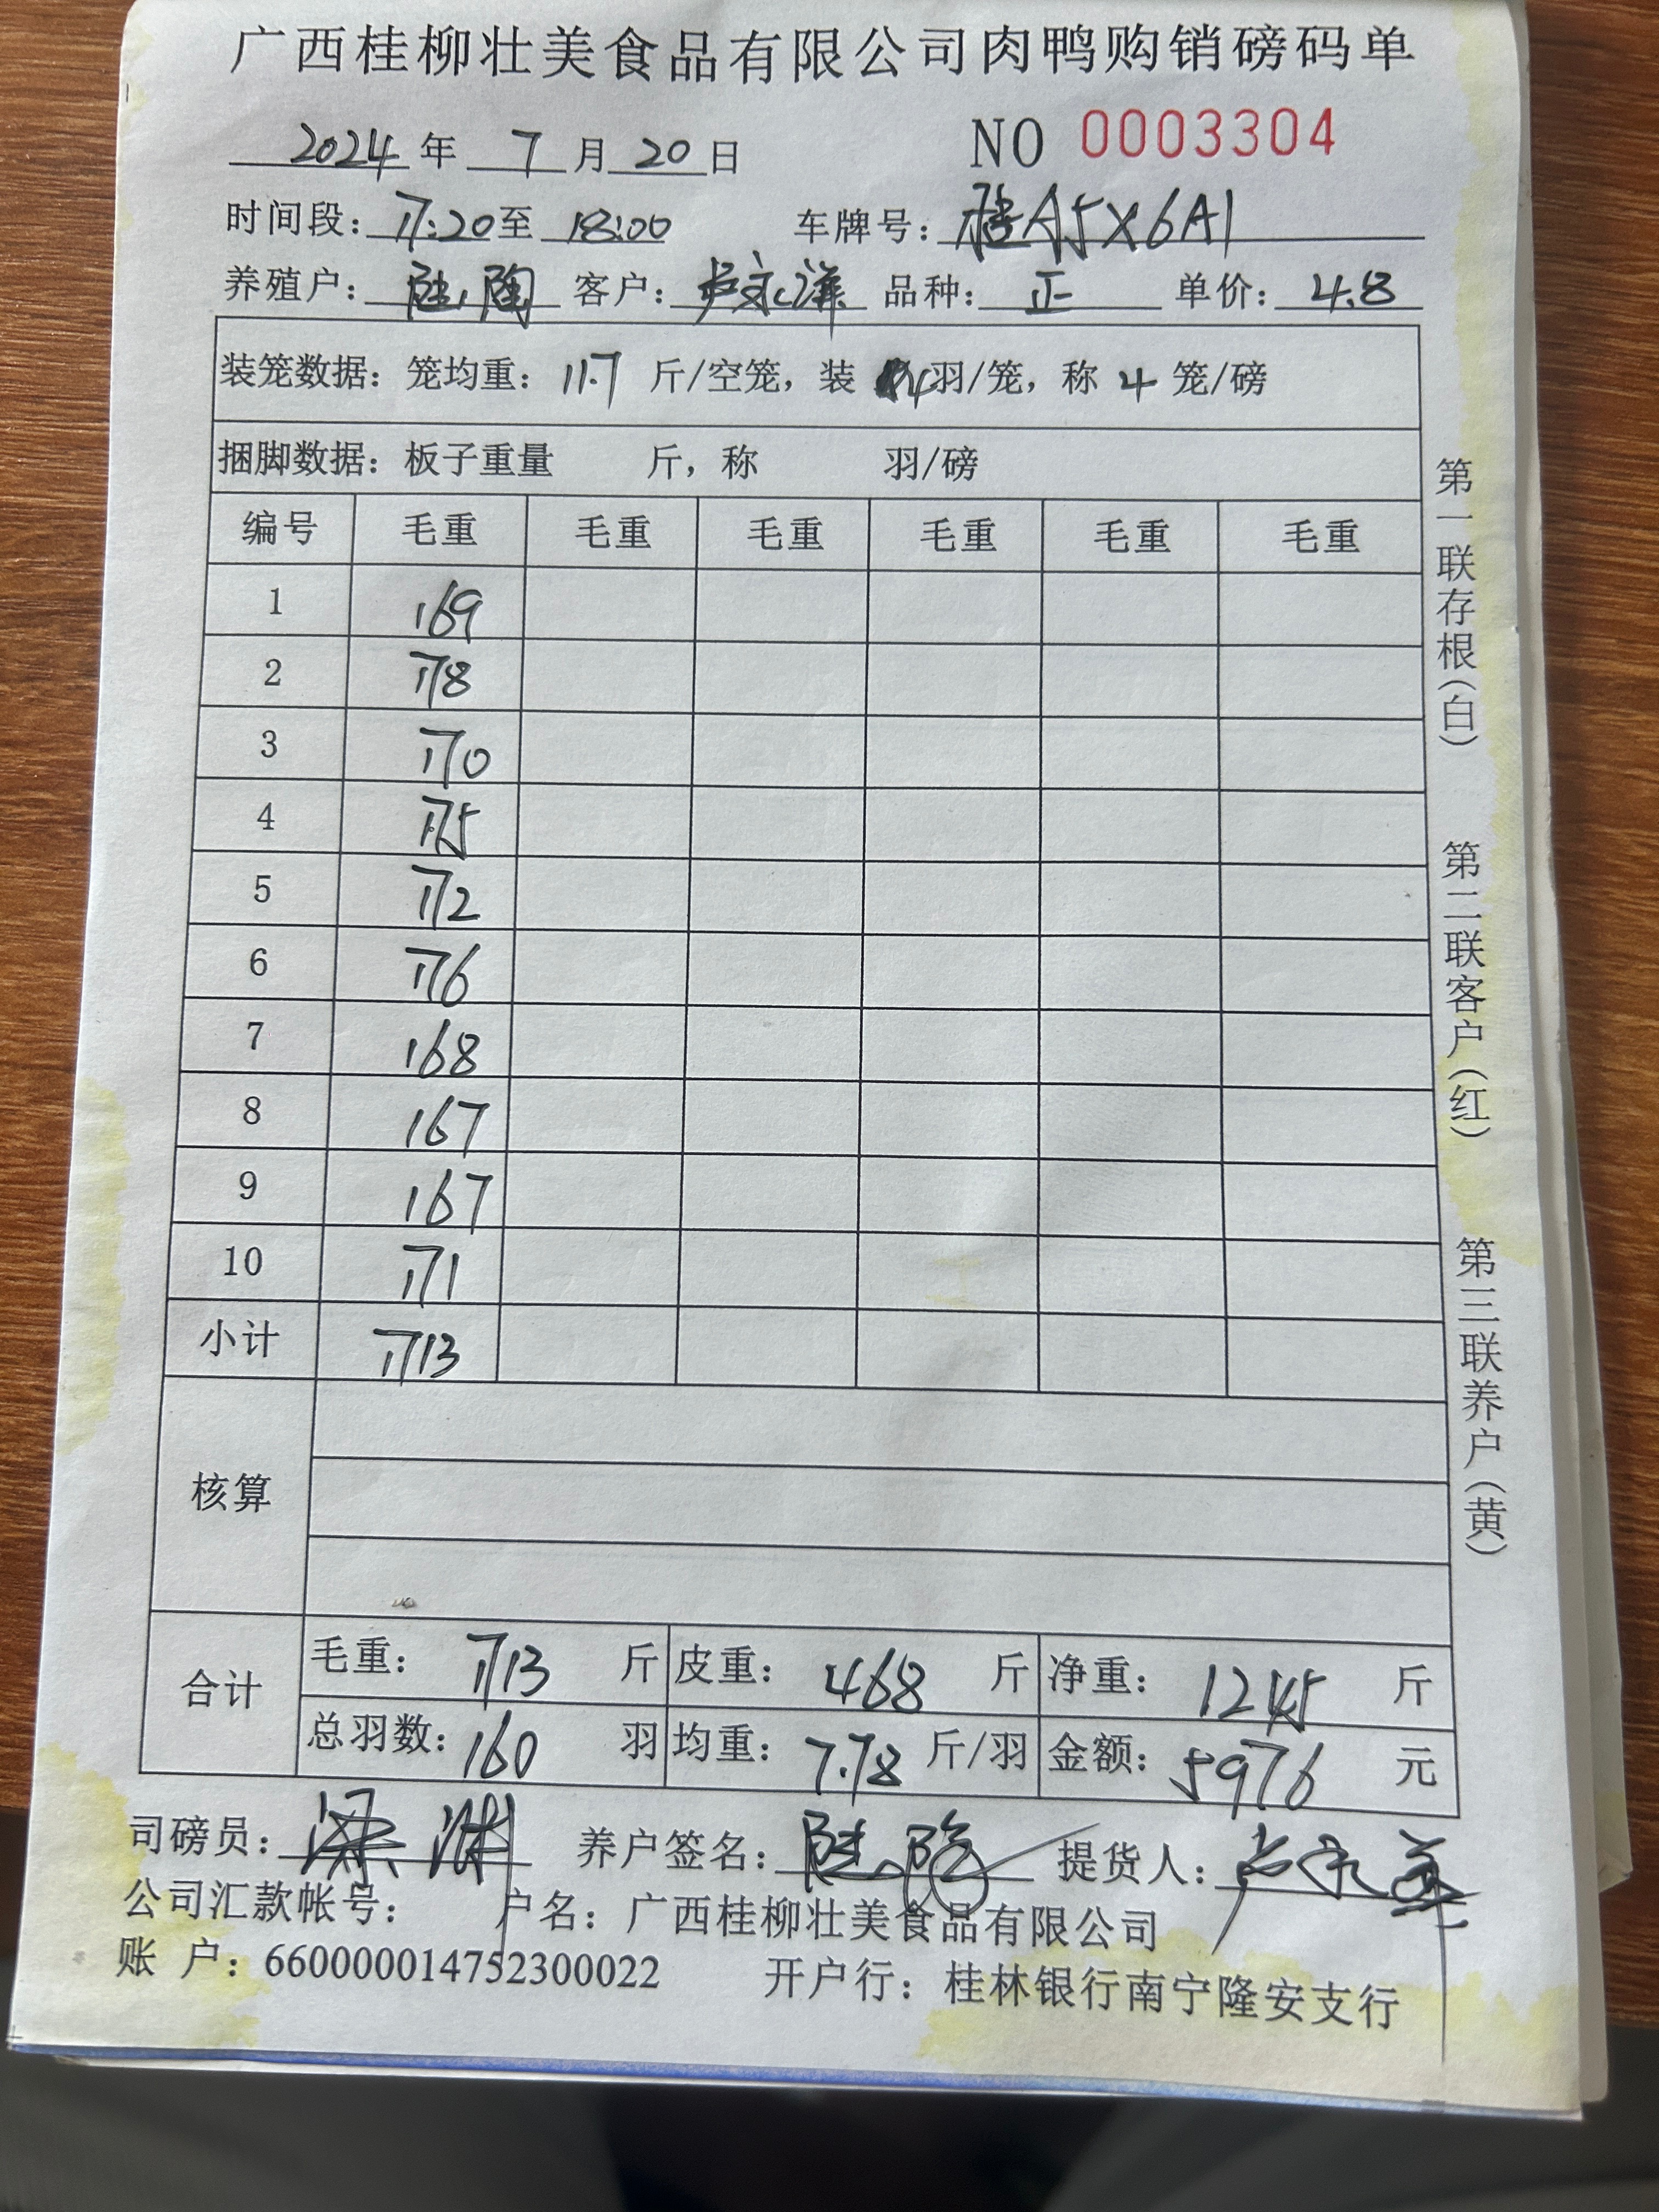 广西桂柳壮美食品有限公司肉鸭购销磅码单
2024 年 7 月 20 日 NO 0003304
时间段：17:20 至 18:00 车牌号：桂A5X6A1
养殖户：陆 客户：永 品种：正 单价：4.8
装笼数据：笼均重：11.7 斤/空笼，装 4 羽/笼，称 4 笼/磅
捆脚数据：板子重量 斤，称 羽/磅
编号 毛重 毛重 毛重 毛重 毛重 毛重
1 169
2 178
3 170
4 175
5 172
6 176
7 168
8 167
9 167
10 171
小计 1713
核算
合计 毛重：1713 斤 皮重：468 斤 净重：1245 斤
总羽数：160 羽 均重：7.78 斤/羽 金额：5976 元
司磅员：梁 养户签名：陆 提货人：
公司汇款帐号： 户名：广西桂柳壮美食品有限公司
账 户：660000014752300022 开户行：桂林银行南宁隆安支行
第一联存根（白） 第二联客户（红） 第三联养户（黄）